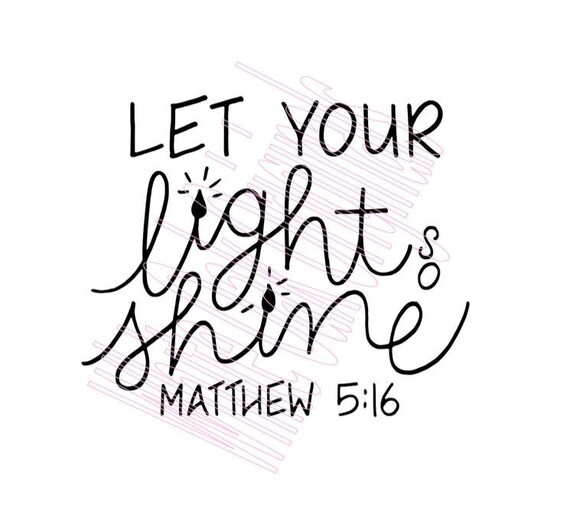 LET YOUR
light so
shine
MATTHEW 5:16